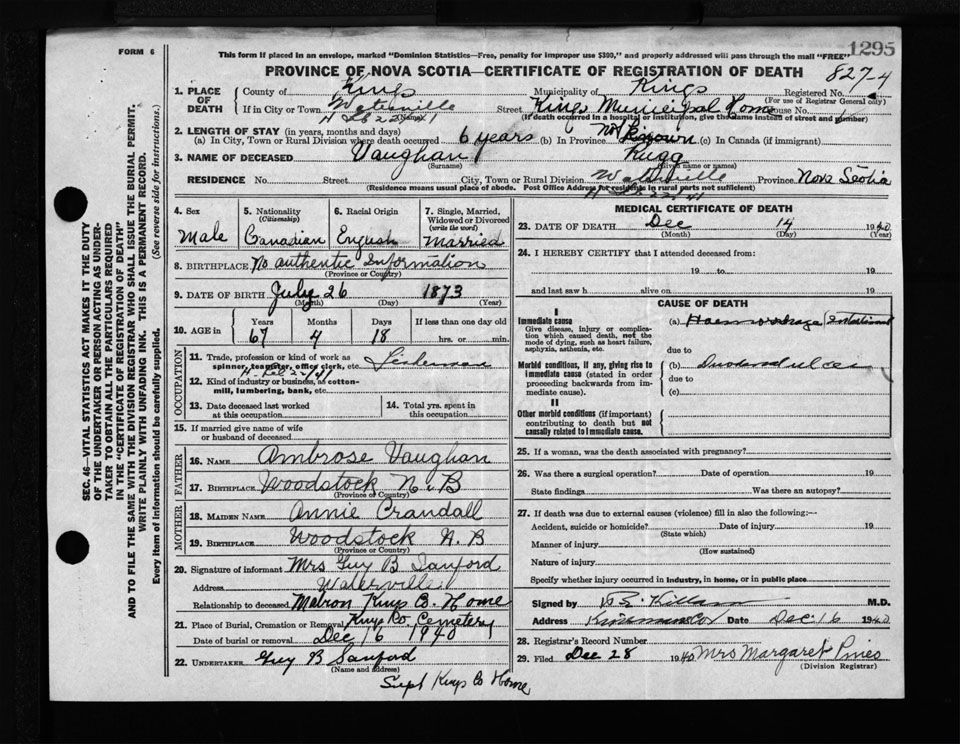 1295
FORM 6
This form if placed in an envelope, marked "Dominion Statistics—Free, penalty for improper use $300," and properly addressed will pass through the mail "FREE"
PROVINCE OF NOVA SCOTIA—CERTIFICATE OF REGISTRATION OF DEATH
827-4
1. PLACE OF DEATH
County of Kings Municipality of Kings Registered No.
(For use of Registrar General only)
If in City or Town Waterville Street Kings Municipal Home House No.
(If death occurred in a hospital or institution, give the same instead of street and number)
2. LENGTH OF STAY (in years, months and days)
(a) In City, Town or Rural Division where death occurred 6 years (b) In Province Not Known (c) In Canada (if immigrant)
3. NAME OF DECEASED Vaughan Rugg
(Surname) (Given name or names)
RESIDENCE No. Street City, Town or Rural Division Waterville Province Nova Scotia
(Residence means usual place of abode. Post Office Address for residents in rural parts not sufficient)
SEC. 46—VITAL STATISTICS ACT MAKES IT THE DUTY
OF THE UNDERTAKER OR PERSON ACTING AS UNDER-
TAKER TO OBTAIN ALL THE PARTICULARS REQUIRED
IN THE "CERTIFICATE OF REGISTRATION OF DEATH"
AND TO FILE THE SAME WITH THE DIVISION REGISTRAR WHO SHALL ISSUE THE BURIAL PERMIT.
WRITE PLAINLY WITH UNFADING INK. THIS IS A PERMANENT RECORD.
Every item of information should be carefully supplied. (See reverse side for instructions.)
4. Sex
Male
5. Nationality
(Citizenship)
Canadian
6. Racial Origin
English
7. Single, Married,
Widowed or Divorced
(write the word)
Married
8. BIRTHPLACE No authentic Information
(Province or Country)
9. DATE OF BIRTH July 26 1873
(Month) (Day) (Year)
10. AGE in
Years Months Days If less than one day old
67 4 18 hrs. or min.
OCCUPATION
11. Trade, profession or kind of work as
spinner, teamster, office clerk, etc.
12. Kind of industry or business, as cotton-
mill, lumbering, bank, etc.
13. Date deceased last worked
at this occupation
14. Total yrs. spent in
this occupation
15. If married give name of wife
or husband of deceased
FATHER
16. NAME Ambrose Vaughan
17. BIRTHPLACE Woodstock N. B
(Province or Country)
MOTHER
18. MAIDEN NAME Annie Crandall
19. BIRTHPLACE Woodstock N. B
(Province or Country)
20. Signature of informant Mrs Guy B Sanford
Address Waterville
Relationship to deceased Matron Kings Co. Home
21. Place of Burial, Cremation or Removal Kings Co. Cemetery
Date of burial or removal Dec 16 1940
22. UNDERTAKER Guy B Sanford
(Name and address)
Supt Kings Co Home
MEDICAL CERTIFICATE OF DEATH
23. DATE OF DEATH Dec 14 1940
(Month) (Day) (Year)
24. I HEREBY CERTIFY that I attended deceased from:
19 to 19
and last saw h alive on 19
CAUSE OF DEATH
I
Immediate cause
Give disease, injury or complica-
tion which caused death, not the
mode of dying, such as heart failure,
asphyxia, asthenia, etc.
(a) Haemorrhage
due to
Morbid conditions, if any, giving rise to
Immediate cause (stated in order
proceeding backwards from im-
mediate cause).
(b) Duodenal ulcer
due to
(c)
II
Other morbid conditions (if important)
contributing to death but not
causally related to immediate cause.
25. If a woman, was the death associated with pregnancy?
26. Was there a surgical operation? Date of operation 19
State findings Was there an autopsy?
27. If death was due to external causes (violence) fill in also the following:—
Accident, suicide or homicide? Date of injury 19
(State which)
Manner of injury
(How sustained)
Nature of injury
Specify whether injury occurred in industry, in home, or in public place
Signed by M.D.
Address Date Dec 16 1940
28. Registrar's Record Number
29. Filed Dec 28 1940 Mrs Margaret Pines
(Division Registrar)